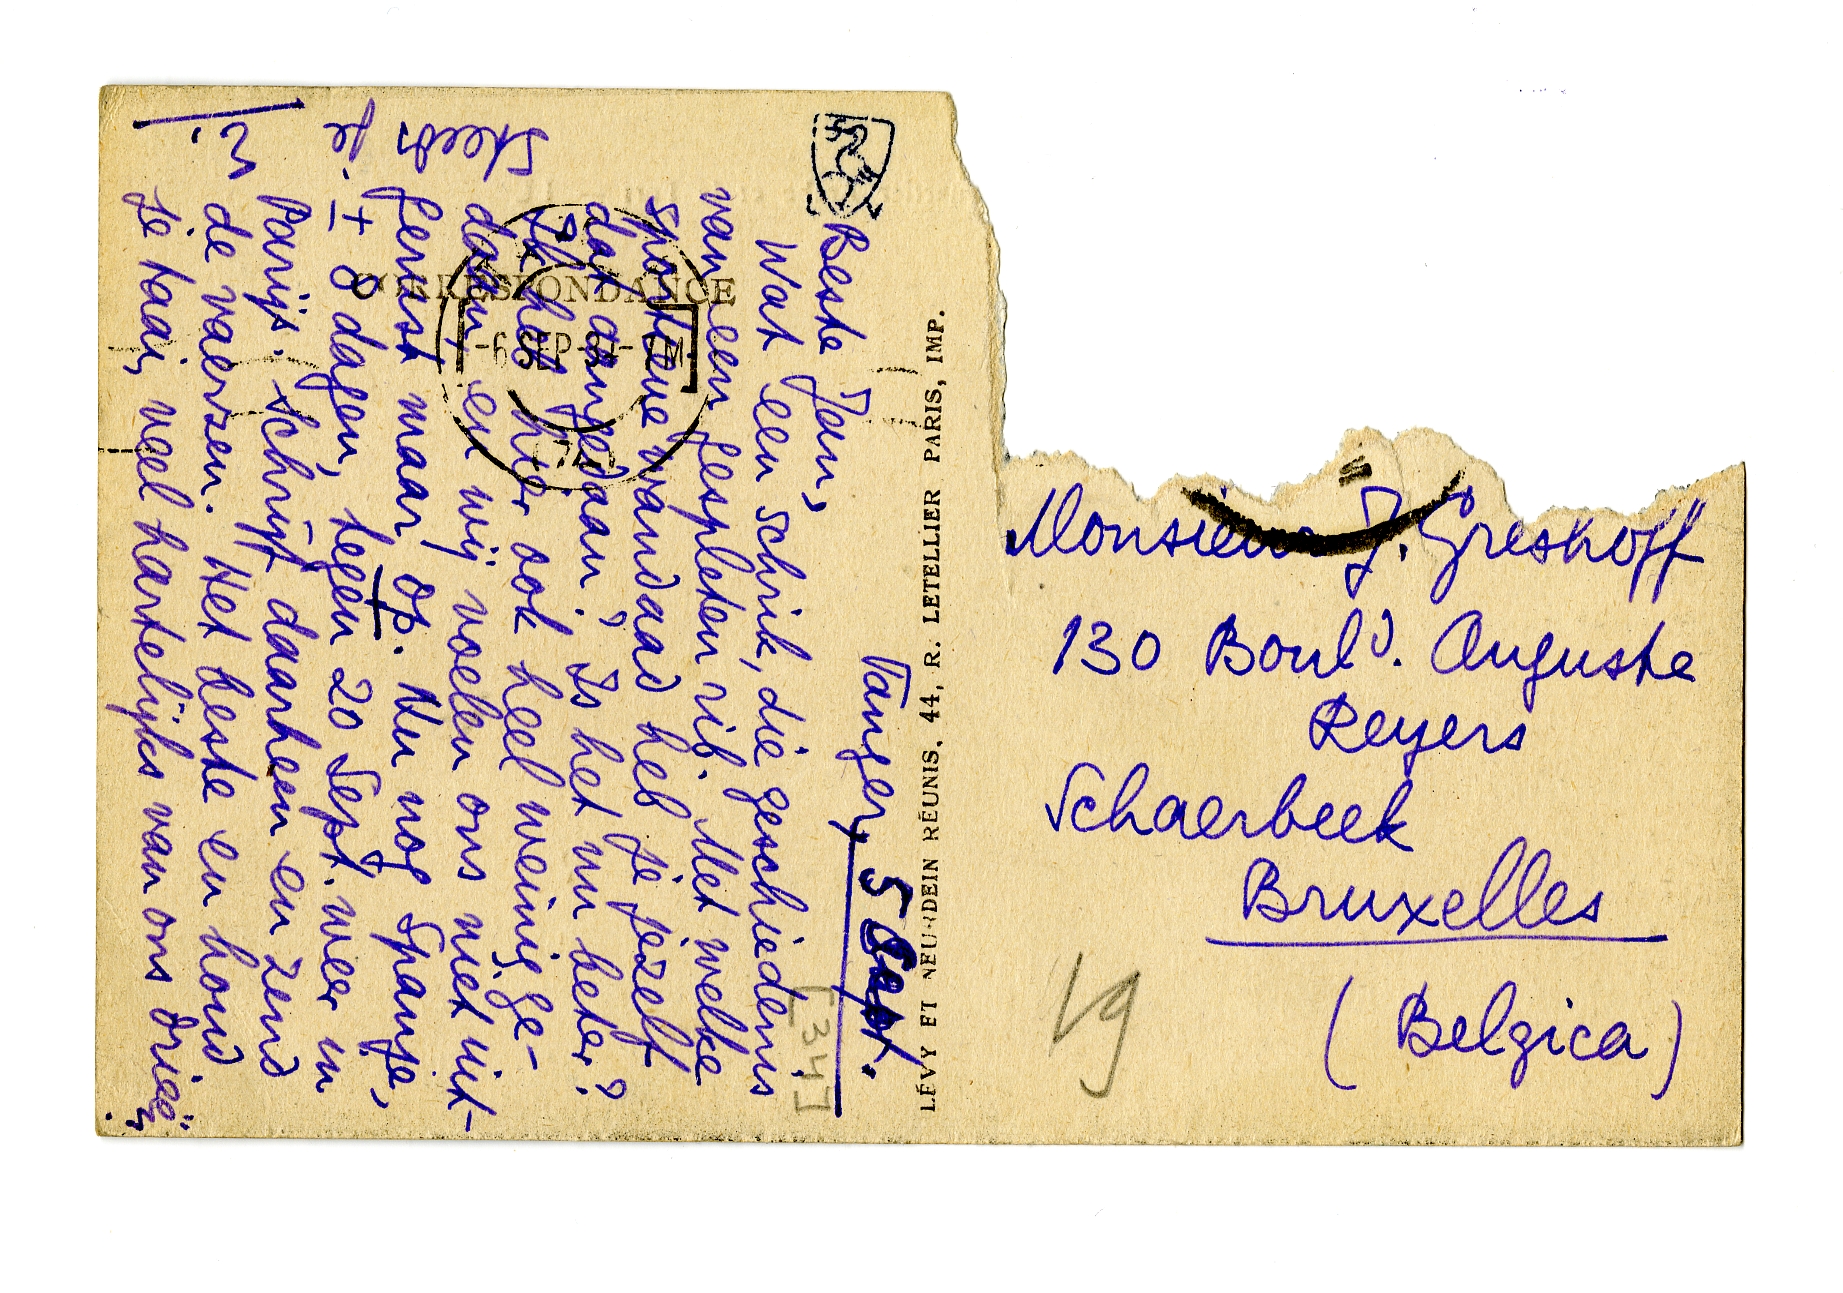 CORRESPONDANCE
Tanger, 5 Sept.
[34]
Beste Jan,
Wat een schrik, die geschiedenis
van een gespleten rib. Met welke
sportieve wandaad heb je jezelf
dat aangedaan? Is het nu beter?
Ik heb hier ook heel weinig ge-
daan en wij voelen ons niet uit-
gerust maar op. Nu nog Spanje,
± 8 dagen, tegen ± 20 Sept. weer in
Parijs. Schrijf daarheen en zend
de vaerzen. Het beste en houd
je taai, veel hartelijks van ons drieën.
Steeds je
E.
-6 SEP-34-
LÉVY ET NEURDEIN RÉUNIS, 44, R. LETELLIER PARIS, IMP.
Monsieur J. Greshoff
130 Boulд. Auguste
Reyers
Schaerbeek
Bruxelles
(Belgica)
19